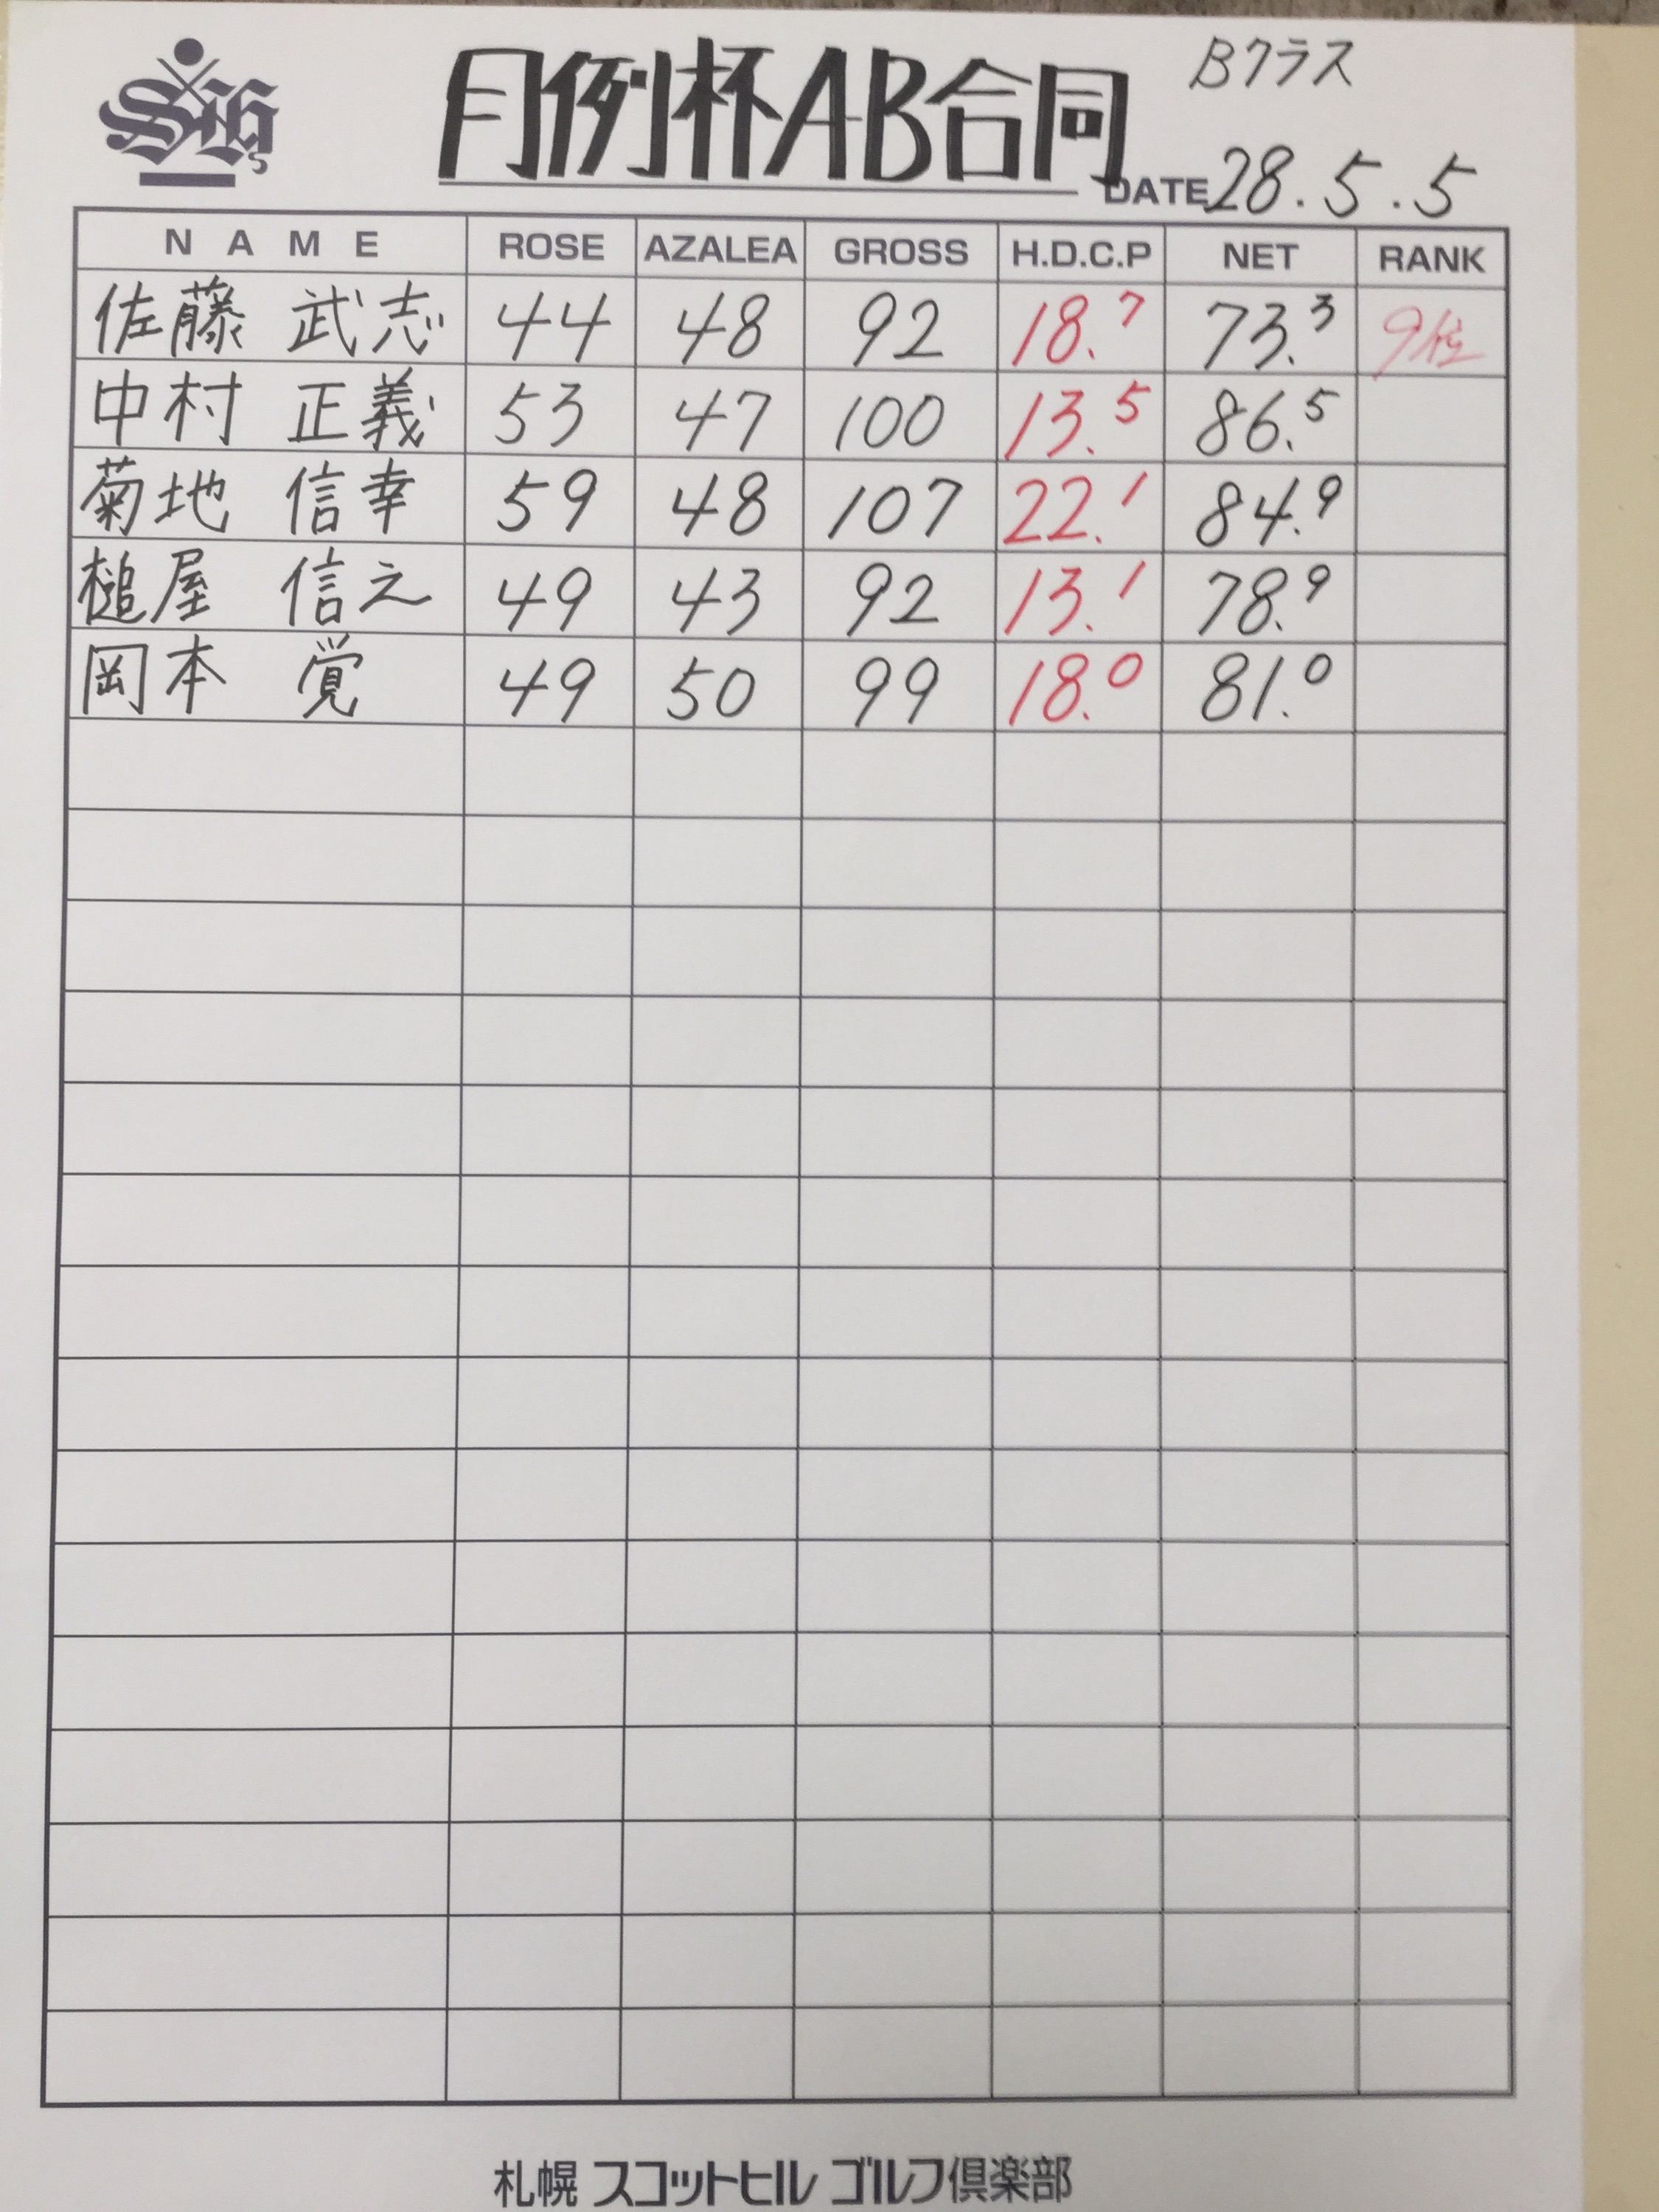 Bクラス
月例杯AB合同
DATE 28.5.5
NAME ROSE AZALEA GROSS H.D.C.P NET RANK
佐藤 武志 44 48 92 18.7 73.3 9位
中村 正義 53 47 100 13.5 86.5
菊地 信幸 59 48 107 22.1 84.9
槌屋 信之 49 43 92 13.1 78.9
岡本 覚 49 50 99 18.0 81.0
札幌 スコットヒル ゴルフ倶楽部